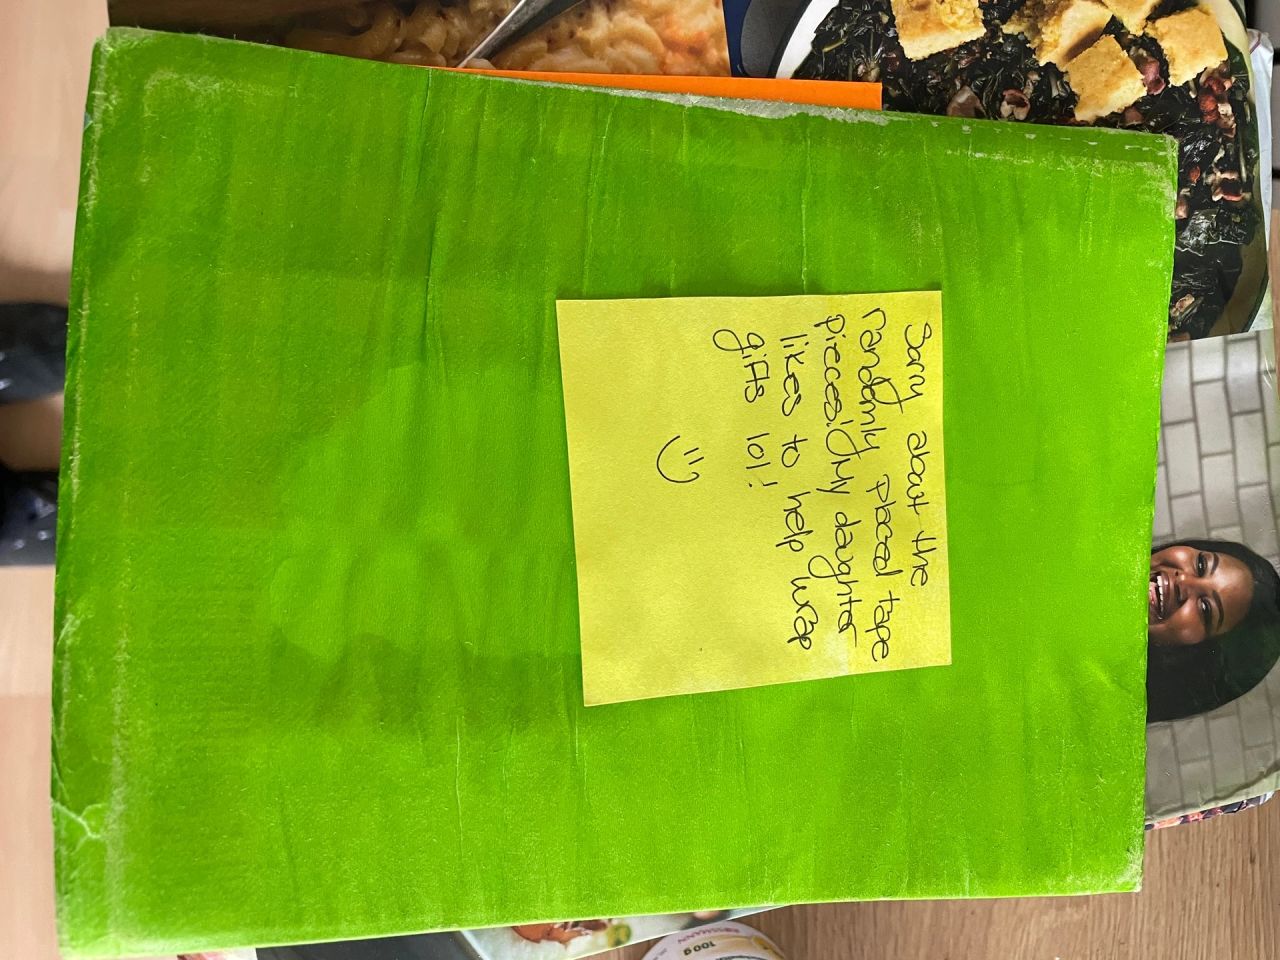 Sorry about the
randomly placed tape
pieces! My daughter
likes to help wrap
gifts lol!
ROSSMANN
100g